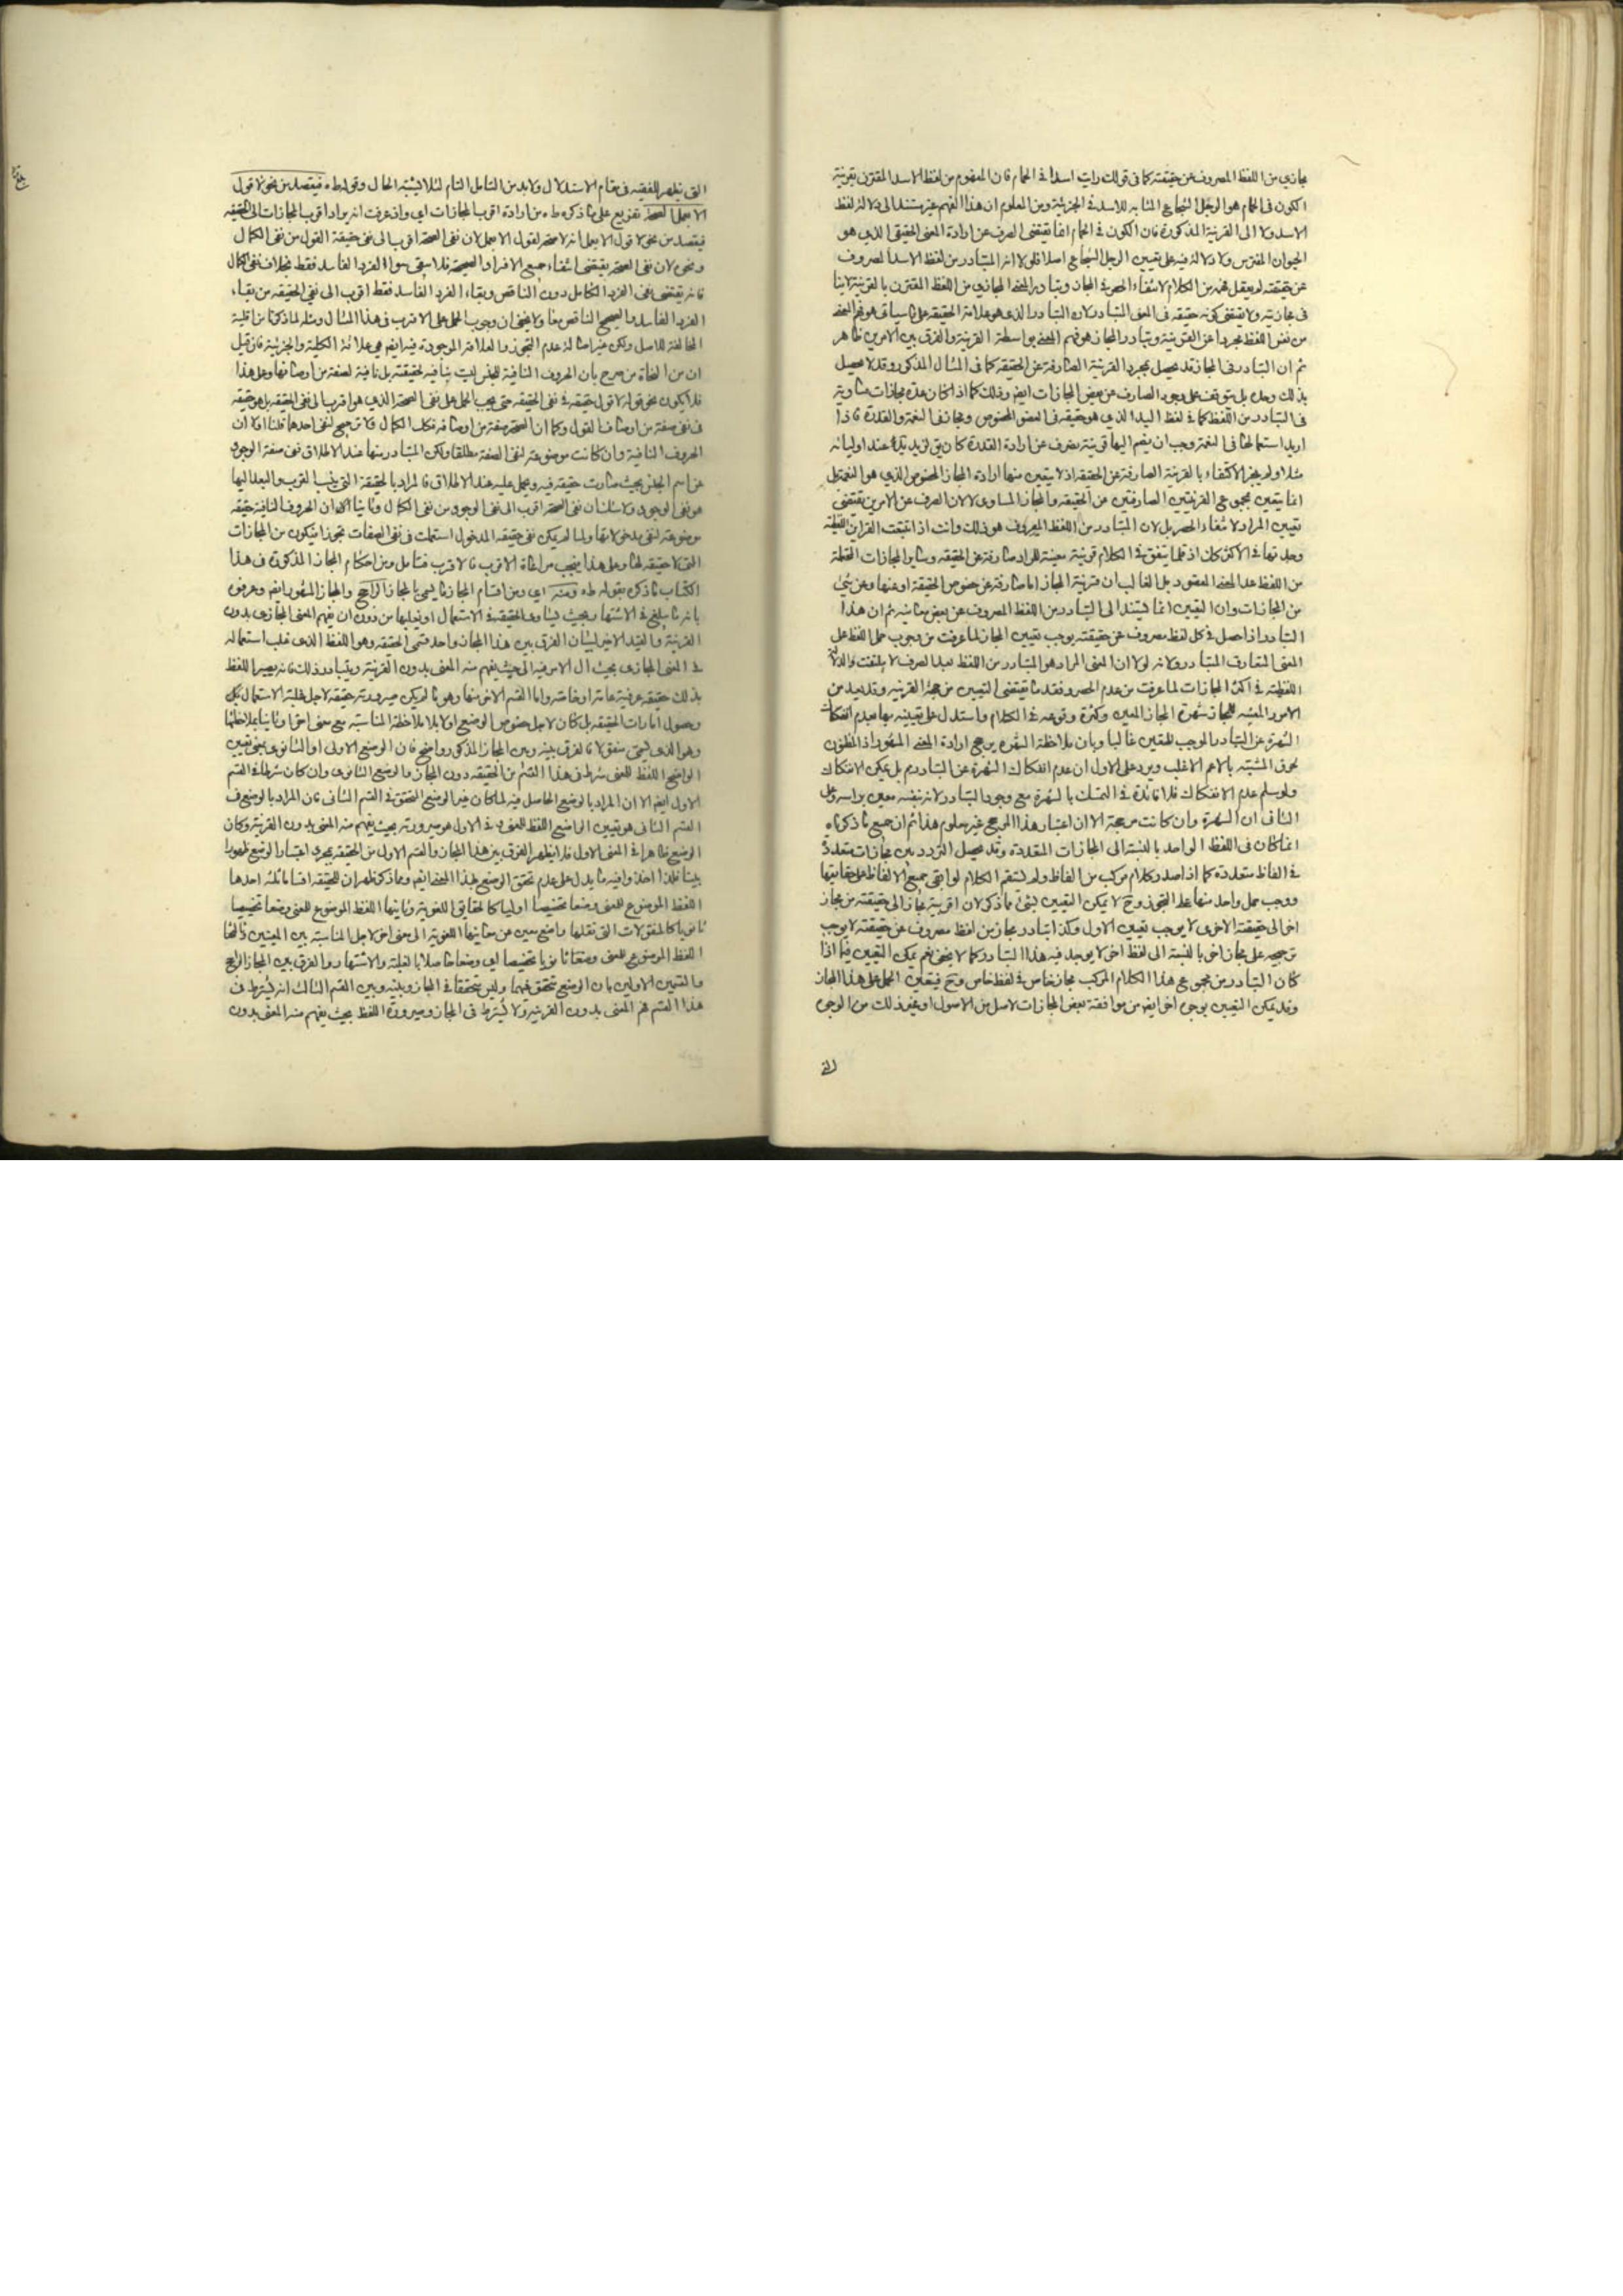 مجازي من اللفظ المصروف عن حقيقته كما في قولك رايت اسدا في الحمام فان المفهوم من لفظ الاسد المقترن بقرينة
الكون في الحمام هو الرجل الشجاع المشابه للاسد في الجزئية ومن المعلوم ان هذا الفهم غير مستند الى دلالة لفظ
الاسد ولا الى القرينة المذكورة فان الكون في الحمام انما يقتضي الصرف عن ارادة المعنى الحقيقي الذي هو
الحيوان المفترس ولا دلالة فيه على تعيين الرجل الشجاع اصلا فلولا انه المتبادر من لفظ الاسد المصروف
عن حقيقته لم يعقل فهمه من الكلام لانتفاء الحصر في المجاز وتبادر المعنى المجازي من اللفظ المقترن بالقرينة لاينا
في مجازيته ولا يقتضي كونه حقيقة في المعنى المتبادر لان التبادر الذي هو علامة الحقيقة على ما سياتي هو فهم المعنى
من نفس اللفظ مجردا عن القرينة وتبادر المجاز هو فهم المعنى بواسطة القرينة والفرق بين الامرين ظاهر
ثم ان التبادر في المجاز قد يحصل بمجرد القرينة الصارفة عن الحقيقة كما في المثال المذكور وقد لا يحصل
بذلك وحده بل يتوقف على وجود الصارف عن بعض المجازات ايضا وذلك كما اذا كان عدة مجازات متساوية
في التبادر من اللفظ كما في لفظ اليد الذي هو حقيقة في العضو المخصوص ومجاز في النعمة والقدرة فاذا
اريد استعمالها في النعمة وجب ان يضم اليها قرينة يصرف عن ارادة القدرة كان يق لزيد يد عند اوليائه
مثلا ولم يجز الاكتفاء بالقرينة الصارفة عن الحقيقة اذ لا يتعين منها ارادة المجاز المخصوص الذي هو النعمة بل
انما يتعين بمجموع القرينتين الصارفتين عن الحقيقة والمجاز المساوي لا لان الصرف عن الامرين يقتضي
تعيين المراد لانتفاء الحصر بل لان المتبادر من اللفظ المصروف هو ذلك وانت اذا تتبعت القراين اللفظية
وجدتها في الاكثر كان اذ قلما يتفق في الكلام قرينة معينة للمراد صارفة عن الحقيقة وساير المجازات المحتملة
من اللفظ عدا المعنى المقصود بل الغالب ان قرينة المجاز اما صارفة عن خصوص الحقيقة او عنها وعن شئ
من المجازات وان التعيين انما يستند الى التبادر من اللفظ المصروف عن بعض معانيه ثم ان هذا
التبادر اذا حصل في كل لفظ مصروف عن حقيقته يوجب تعيين المجاز لما عرفت من وجوب حمل اللفظ على
المعنى المتعارف المتبادر ولانه لولا ان المعنى المراد هو المتبادر من اللفظ بعد الصرف لا
اللفظية في اكثر المجازات لما عرفت من عدم الحصر وفقد ما يقتضي التعيين من جهة القرينة وقد يعد من
الامور المعينة للمجاز شهرة المجاز المعين وكثرة وقوعه في الكلام واستدل على تعيينه بها بعدم انفكاك
الشهرة عن التبادر الموجب للتعين غالبا وبان ملاحظة الشهرة يرجح ارادة المعنى المشهور اذ المظنون
لحوق المشتبه بالاعم الاغلب ويرد على الاول ان عدم انفكاك الشهرة عن التبادر م بل يمكن الانفكاك
ولو سلم عدم الانفكاك فلا فائدة في التمسك بالشهرة مع وجود التبادر لانه بنفسه معين براسه وعلى
الثاني ان الشهرة وان كانت مرجحة الا ان اعتبار هذا المرجح غير معلوم هذا ثم ان جميع ما ذكرناه
انما كان في اللفظ الواحد بالنسبة الى المجازات المتعددة وقد يحصل التردد بين مجازات متعددة
في الفاظ متعددة كما اذا صدر كلام مركب من الفاظ ولم يستقم الكلام لو ابقي جميع الالفاظ على حقايقها
ووجب حمل واحد منها على التجوز وح لا يمكن التعيين لشئ مما ذكر لان اقربية مجاز الى حقيقته من مجاز
اخر الى حقيقته الاخرى لا يوجب تعيين الاول وكذا تبادر مجاز من لفظ مصروف عن حقيقته لا يوجب
ترجيحه على مجاز اخر بالنسبة الى لفظ اخر لا يوجد فيه هذا التبادر كما لا يخفى نعم يمكن التعيين فيما اذا
كان التبادر من مجموع هذا الكلام المركب مجاز خاص في لفظ خاص وح فيتعين الحمل على هذا المجاز
وقد يمكن التعيين بوجوه اخر ايضا من موافقة بعض المجازات لاصل من الاصول او غير ذلك من الوجوه
التي
التي يظهر للفقيه في مقام الاستدلال ولا بد من التامل التام لئلا يشتبه الحال وقوله ط ه فيقصد من نحو لا قول
الا بعمل الصحة تفريع على ما ذكره ط ه من ارادة اقرب المجازات اي واذ عرفت انه يراد اقرب المجازات الى الحقيقة
فيقصد من نحو لا قول الا بعمل انه لا صحة لقول الا بعمل لان نفي الصحة اقرب الى نفي حقيقة القول من نفي الكمال
ونحوه لان نفي الصحة يقتضي انتفاء جميع الافراد الصحيحة فلا يبقى سوى الفرد الفاسد فقط بخلاف نفي الكمال
فانه يقتضي نفي الفرد الكامل دون الناقص وبقاء الفرد الفاسد فقط اقرب الى نفي الحقيقة من بقاء
الفرد الفاسد والصحيح الناقص معا ولا يخفى ان وجوب الحمل على الاقرب في هذا المثال ومثله لما ذكرنا من اقلية
المخالفة للاصل ولكن غير اصالة عدم التجوز والعلاقة الموجودة فيه ايضا هي علاقة الكلية والجزئية فان قيل
ان من النحاة من صرح بان الحروف النافية للجنس ليست بنافية لحقيقته بل نافية لصفة من اوصافها وعلى هذا
فلا يكون نحو قوله لا قول حقيقة في نفي الحقيقة حتى يجب الحمل على نفي الصحة الذي هو اقرب الى نفي الحقيقة بل هو حقيقة
في نفي صفة من اوصاف القول وكما ان الصحة صفة من اوصافه فكك الكمال فلا ترجيح لنفي احدهما قلنا اولا ان
الحروف النافية وان كانت موضوعة لنفي الصفة مطلقا ولكن المتبادر منها عند الاطلاق نفي صفة الوجود
عن اسم الجنس بحيث صارت حقيقة فيه ويحمل عليه عند الاطلاق فالمراد بالحقيقة التي ينسب القرب والبعد اليها
هو نفي الوجود ولا شك ان نفي الصحة اقرب الى نفي الوجود من نفي الكمال وثانيا ان الحروف النافية حقيقة
موضوعة لنفي مدخولاتها ولما لم يكن نفي حقيقة المدخول استعملت في نفي الصفات تجوزا فيكون من المجازات
التي لا حقيقة لها وعلى هذا فيجب مراعاة الاقرب فالاقرب فتامل ومن احكام المجاز المذكورة في هذا
الكتاب ما ذكره بقوله ط ه ومنه اي ومن اقسام المجاز ما يسمى بالمجاز الراجح والمجاز المشهور ايضا وعرفوه
بانه ما يبلغ في الاشتهار بحيث يساوي الحقيقة في الاستعمال او يغلبها من دون ان يفهم المعنى المجازي بدون
القرينة والقيد الاخير لبيان الفرق بين هذا المجاز واحد قسمي الحقيقة وهو اللفظ الذي غلب استعماله
في المعنى المجازي بحيث ال الامر فيه الى حيث يفهم منه المعنى بدون القرينة ويتبادر ذلك فانه يصير اللفظ
بذلك حقيقة عرفية عامة او خاصة واما القسم الاخر منها وهو ما لم يكن صيرورته حقيقة لاجل غلبة الاستعمال بل
وحصول امارات الحقيقة بل كان لاجل خصوص الوضع اولا بلا ملاحظة المناسبة مع معنى اخر او ثانيا بملاحظتها
وهو الذي يسمى منقولا فالفرق بينه وبين المجاز المذكور واضح فان الوضع الاولي او الثانوي بمعنى تعيين
الواضع اللفظ للمعنى شرط في هذا القسم من الحقيقة دون المجاز والوضع الثانوي وان كان شرطا في القسم
الاول ايضا الا ان المراد بالوضع الحاصل فيه لما كان غير الوضع المتحقق في القسم الثاني فان المراد بالوضع في
القسم الثاني هو تعيين الواضع اللفظ للمعنى وفي الاول هو صيرورته بحيث يفهم منه المعنى بدون القرينة وكان
الوضع ظاهرا في المعنى الاول فلا يظهر الفرق بين هذا المجاز والقسم الاول من الحقيقة بمجرد اعتبار الوضع ظهورا
بينا فلذا اخذوا فيه ما يدل على عدم تحقق الوضع بهذا المعنى ايضا ومما ذكر ظهر ان للحقيقة اقساما ثلثة احدها
اللفظ الموضوع للمعنى وضعا تخصيصيا اوليا كالحقايق اللغوية وثانيها اللفظ الموضوع للمعنى وضعا تخصيصيا
ثانويا كالمنقولات التي نقلها واضع معين من معانيها اللغوية الى معنى اخر لاجل المناسبة بين المعنيين وثالثها
اللفظ الموضوع للمعنى وضعا ثانويا تخصصيا اي وضعا حاصلا بالغلبة والاشتهار والفرق بين المجاز الراجح
والقسمين الاولين بان الوضع تحقق فيهما وليس متحققا في المجاز وبينه وبين القسم الثالث انه يشترط في
هذا القسم فهم المعنى بدون القرينة ولا يشترط في المجاز وصيرورة اللفظ بحيث يفهم منه المعنى بدون